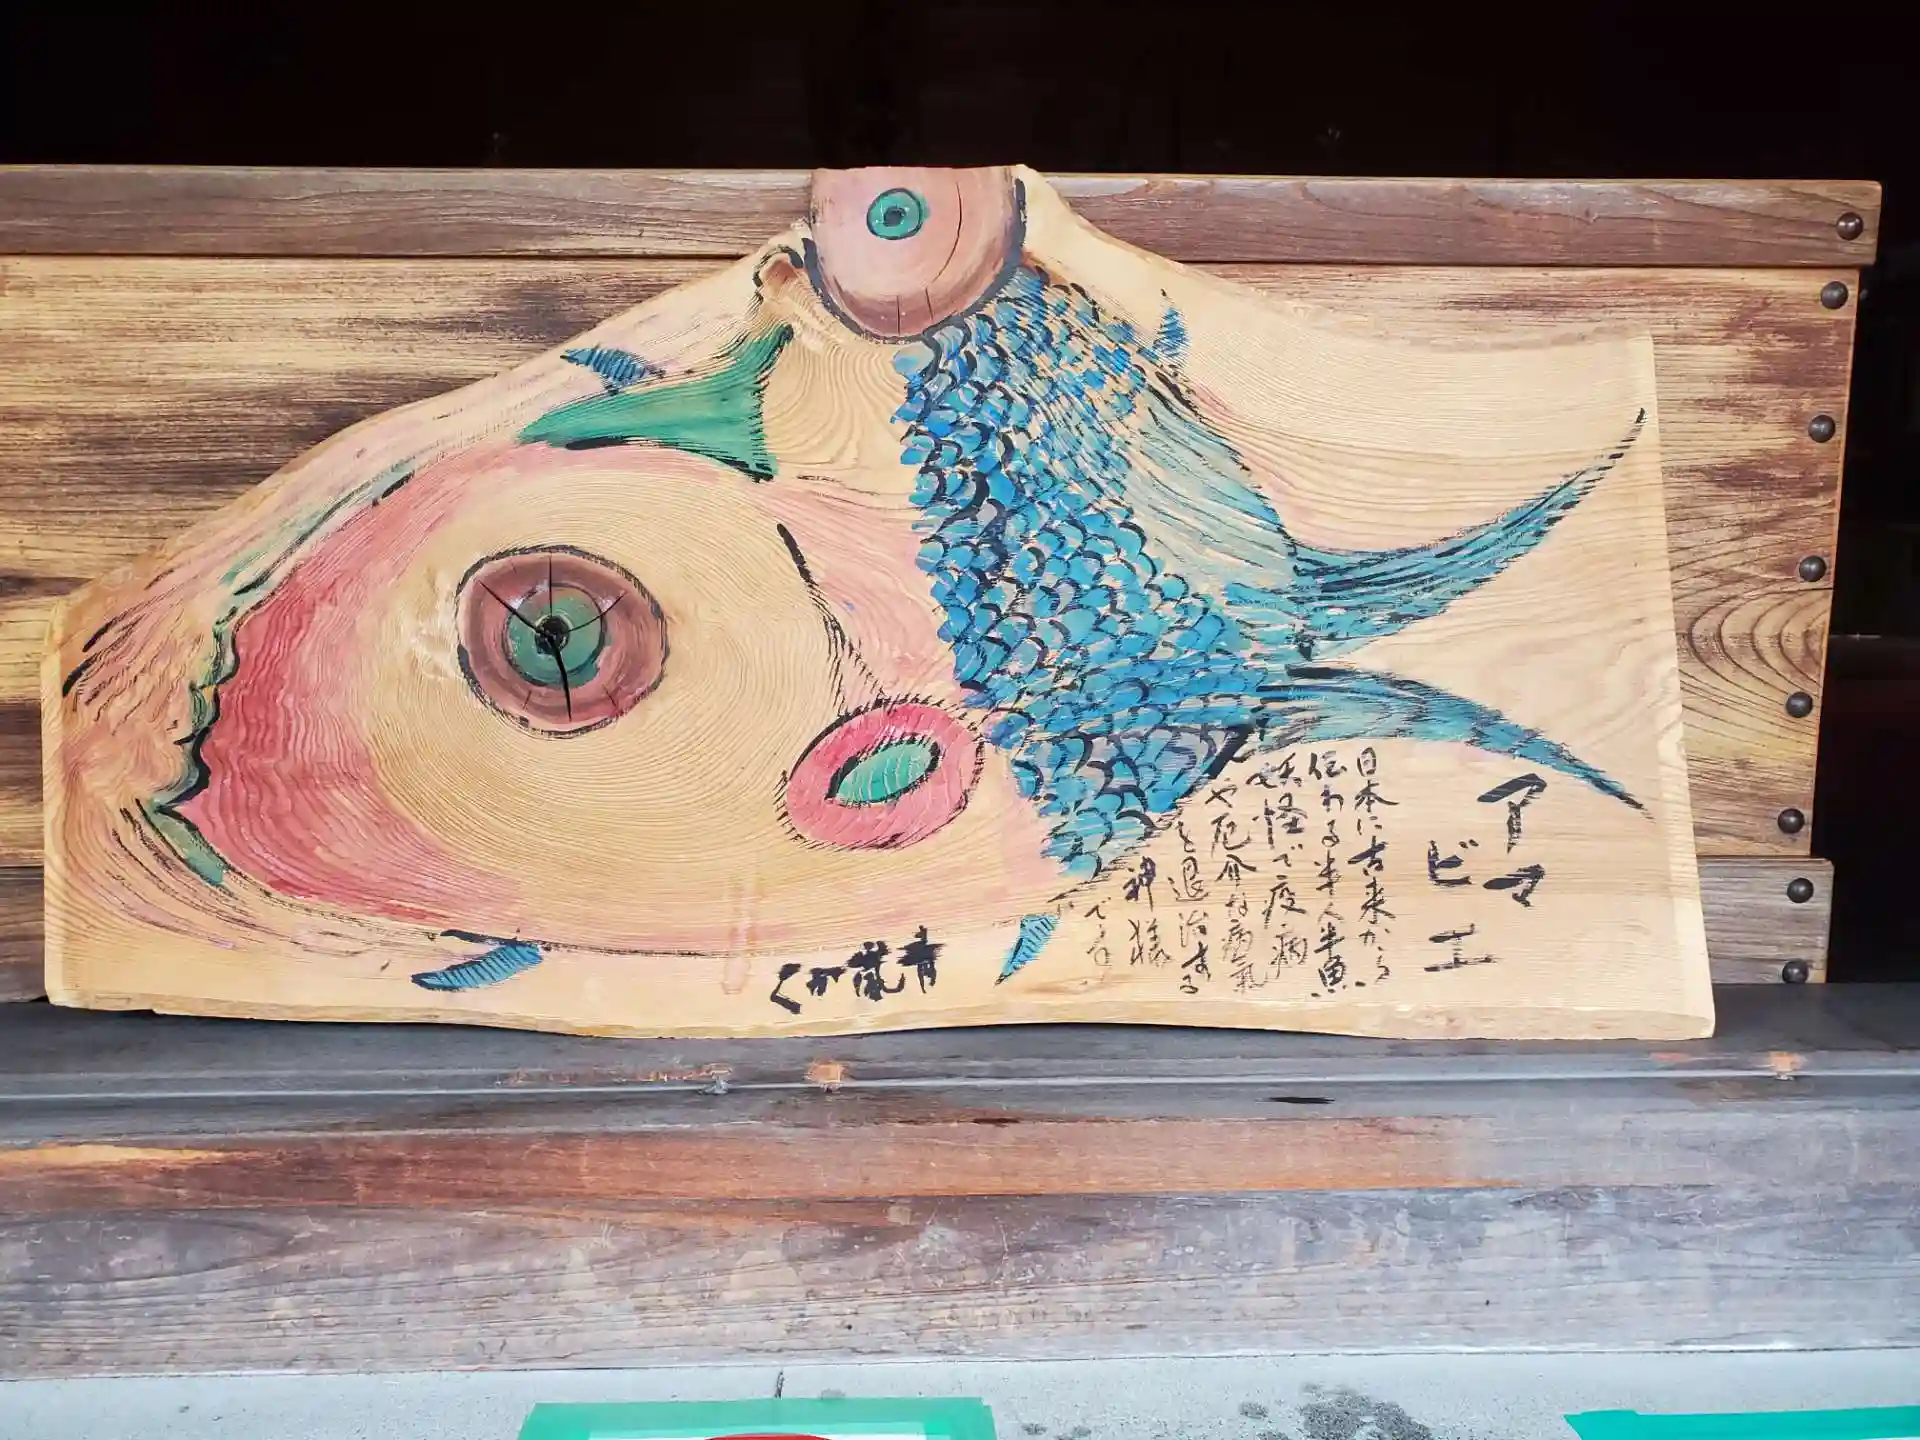 アマビエ
日本に古来から
伝わる半人半魚
妖怪で疫病
や厄介な病氣
を退治する
神様
です
青嵐
くが